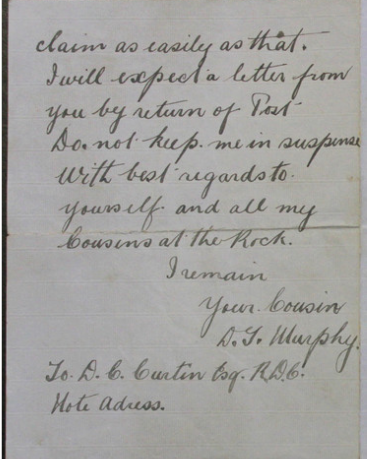 claim as easily as that.
I will expect a letter from
you by return of Post
Do not keep me in suspense
With best regards to
yourself and all my
Cousins at the Rock.
I remain
Your Cousin
D. T. Murphy.
To D. C. Curtin Esq. R.D.C.
Note Adress.